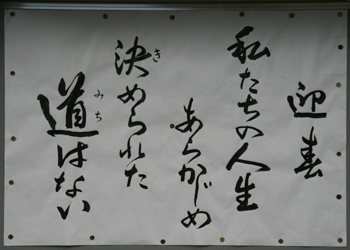 迎春
私たちの人生
あらかじめ
決められた
道はない
き
みち